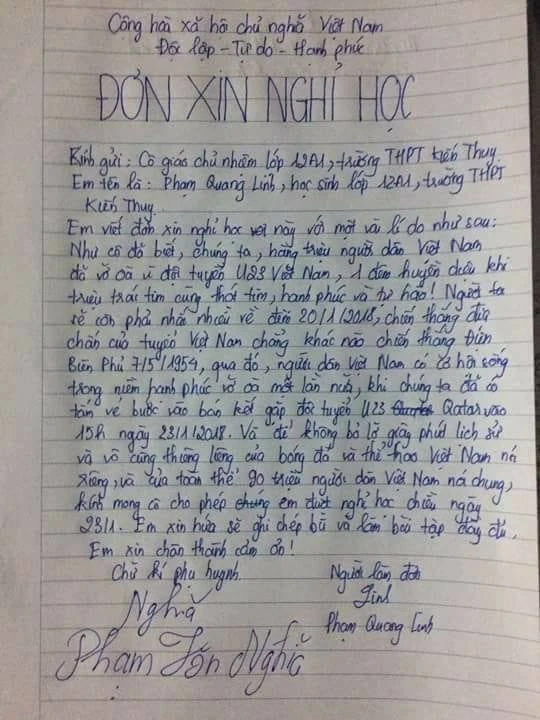 Cộng hòa xã hội chủ nghĩa Việt Nam
Độc lập - Tự do - Hạnh phúc
ĐƠN XIN NGHỈ HỌC
Kính gửi: Cô giáo chủ nhiệm lớp 12A1, trường THPT Kiến Thụy.
Em tên là: Phạm Quang Linh, học sinh lớp 12A1, trường THPT
Kiến Thụy.
Em viết đơn xin nghỉ học này với một vài lí do như sau:
Như cô đã biết, chúng ta, hàng triệu người dân Việt Nam
đã vỡ oà vì đội tuyển U23 Việt Nam, 1 đêm huyền diệu khi
triệu trái tim cùng thót tim, hạnh phúc và tự hào! Người ta
sẽ còn phải nhắc nhiều về đêm 20/1/2018, chiến thắng đưa
chân của tuyển Việt Nam chẳng khác nào chiến thắng Điện
Biên Phủ 7/5/1954, qua đó, người dân Việt Nam có cơ hội sống
trong niềm hạnh phúc vỡ oà một lần nữa, khi chúng ta đã có
tấm vé bước vào bán kết gặp đội tuyển U23 Qatar vào
15h ngày 23/1/2018. Và để không bỏ lỡ giây phút lịch sử
và vô cùng thiêng liêng của bóng đá và thể thao Việt Nam nói
riêng, và của toàn thể 90 triệu người dân Việt Nam nói chung,
kính mong cô cho phép chúng em được nghỉ học chiều ngày
23/1. Em xin hứa sẽ ghi chép bù và làm bài tập đầy đủ.
Em xin chân thành cảm ơn!
Chữ kí phụ huynh. Người làm đơn
Nghĩa Linh
Phạm Quang Linh
Phạm Văn Nghĩa